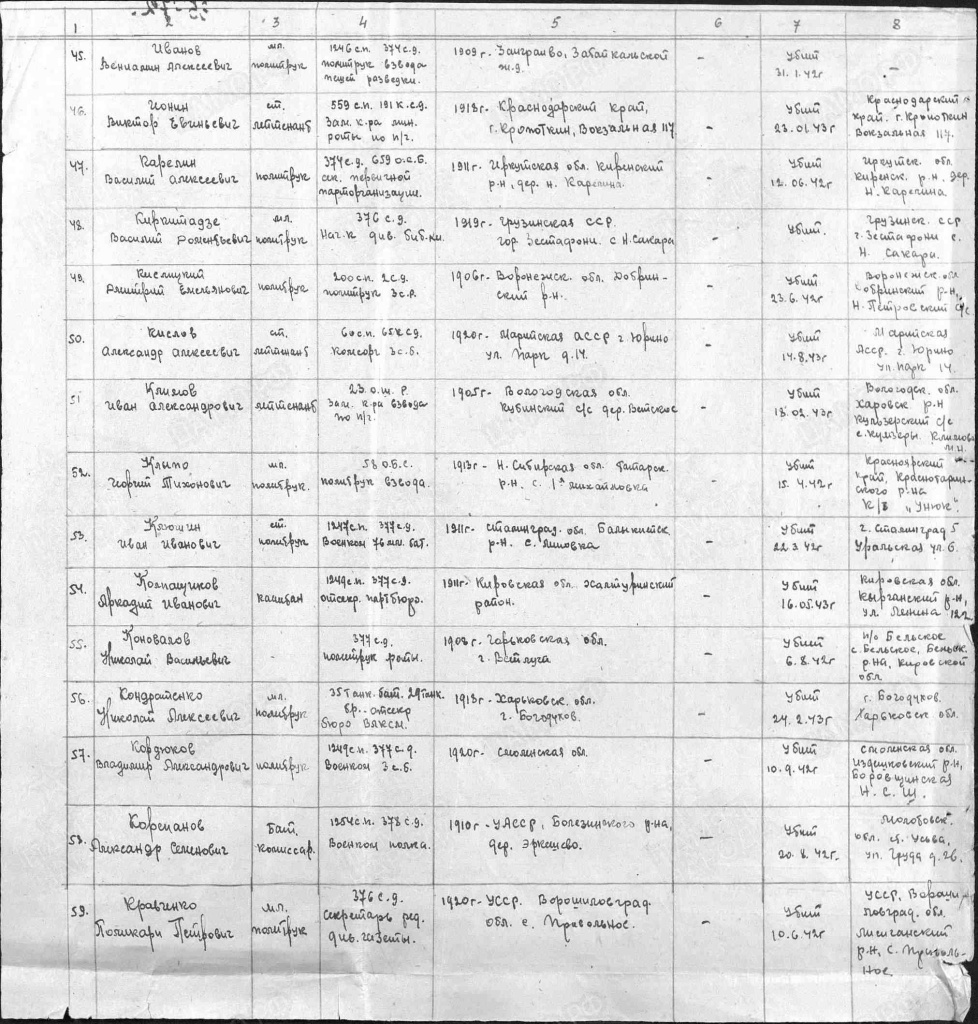 1 2 3 4 5 6 7 8
45. Иванов
Вениамин Алексеевич
мл.
политрук
1246 с.п. 374 с.д.
политрук взвода
пешей разведки.
1909 г. Заиграево, Забайкальской
ж.д.
-
Убит
31.1.42г
-
46. Ионин
Виктор Евгеньевич
ст.
лейтенант
559 с.п. 191 к.с.д.
Зам. к-ра мин.
роты по п/ч.
1918г- Краснодарский край,
г. Кропоткин, Вокзальная 117
-
Убит
23.01.43г
Краснодарский
край. г. Кропоткин
Вокзальная 117.
47. Карелин
Василий Алексеевич
политрук
374 с.д. 659 о.с.б.
сек. первичной
парторганизации.
1911г- Иркутская обл. Киренский
р-н, дер. Н. Карелина.
-
Убит
12.06.42г
Иркутск. обл.
Киренск. р-н. дер.
Н. Карелина
48. Киркитадзе
Василий
мл.
политрук
376 с.д.
Нач-к див. биб-ки.
1919г- Грузинская ССР
гор. Зестафони. с. Н. Сакара
-
Убит.
Грузинск. ССР
г. Зестафони с.
Н. Сакара.
49. Кислицкий
Дмитрий Емельянович
политрук
200 сп. 2 с.д.
политрук 3 с.р.
1906г- Воронежск. обл. Добрин-
ский р-н.
-
Убит
23.6.42г
Воронежск. обл
Добринский р-н,
Н-Петровский с/с
50. Кислов
Александр Алексеевич
ст.
лейтенант
60 сп. 65 к сд.
Комсорг 3 с.б.
1920г- Марийская АССР г. Юрино
ул. Парк д. 14.
-
Убит
14.8.43г
Марийская
Асср. г. Юрино
ул. парк 14.
51 Климов
Иван Александрович
лейтенант
23 о.ш.р.
Зам. к-ра взвода
по п/ч.
1905г- Вологодская обл.
Кубинский с/с дер. Ветское
-
Убит
18.02.43г
Вологодск. обл.
Харовск. р-н
Кумзерский с/с
с. Кумзеры. Климова
52. Клыпо
Георгий Тихонович
мл.
политрук.
58 о.б.с.
политрук взвода.
1913г- Н. Сибирская обл. татарск.
р-н. с. 1я Михайловка
-
Убит
15.4.42г
Красноярский
край, Краснотуран-
ского р-на
К/з "Унюк".
53. Клюшин
Иван Иванович
ст.
политрук
1247 с.п. 377 с.д.
Военком 76 мм. бат.
1911г- Сталинград. обл. Балыклейск
р-н. с. Липовка
-
Убит
22.3.42г
г. Сталинград 5
Уральская ул. 6.
54. Колпащиков
Аркадий Иванович
капитан
1249 с.п. 377 с.д.
отсекр. партбюро.
1911г- Кировская обл. Халтуринский
район.
-
Убит
16.05.43г
Кировская обл.
р-н,
ул. Ленина 122
55. Коновалов
Николай Васильевич
-
377 с.д.
политрук роты.
1908г- Горьковская обл.
г. Ветлуга
-
Убит
6.8.42г
п/о Бельское
с. Бельское, Бельск.
р-на, Кировской
обл
56. Кондратенко
Николай Алексеевич
мл.
политрук
35 Танк. бат. 29 танк.
бр.- отсекр
бюро ВЛКСМ.
1913г- Харьковск. обл.
г. Богодухов.
-
Убит
24.2.43г
г. Богодухов.
Харьковск обл.
57. Кордюков
Владимир Александрович
политрук
1249 с.п. 377 с.д.
Военком 3 с.б.
1920г- Смоленская обл.
-
Убит
10.9.42г
Смоленская обл.
Издешковский р-н,
Боровщинская
Н. С. Ш.
58. Корепанов
Александр Семенович
бат.
комиссар.
1254 с.п. 378 с.д.
Военком полка.
1910г- УАССР, Болезинского р-на,
дер. Эркешево.
-
Убит
20.8.42г.
Молотовск.
обл. ст. Усьва,
ул. Труда д. 26.
59. Кравченко
Поликарп Петрович
мл.
политрук
376 с.д.
секретарь ред.
див. газеты.
1920г- УССР. Ворошиловград.
обл. с. Привольное.
-
Убит
10.6.42г
УССР, Вороши-
ловград. обл.
Лисичанский
р-н, с. Приволь-
ное